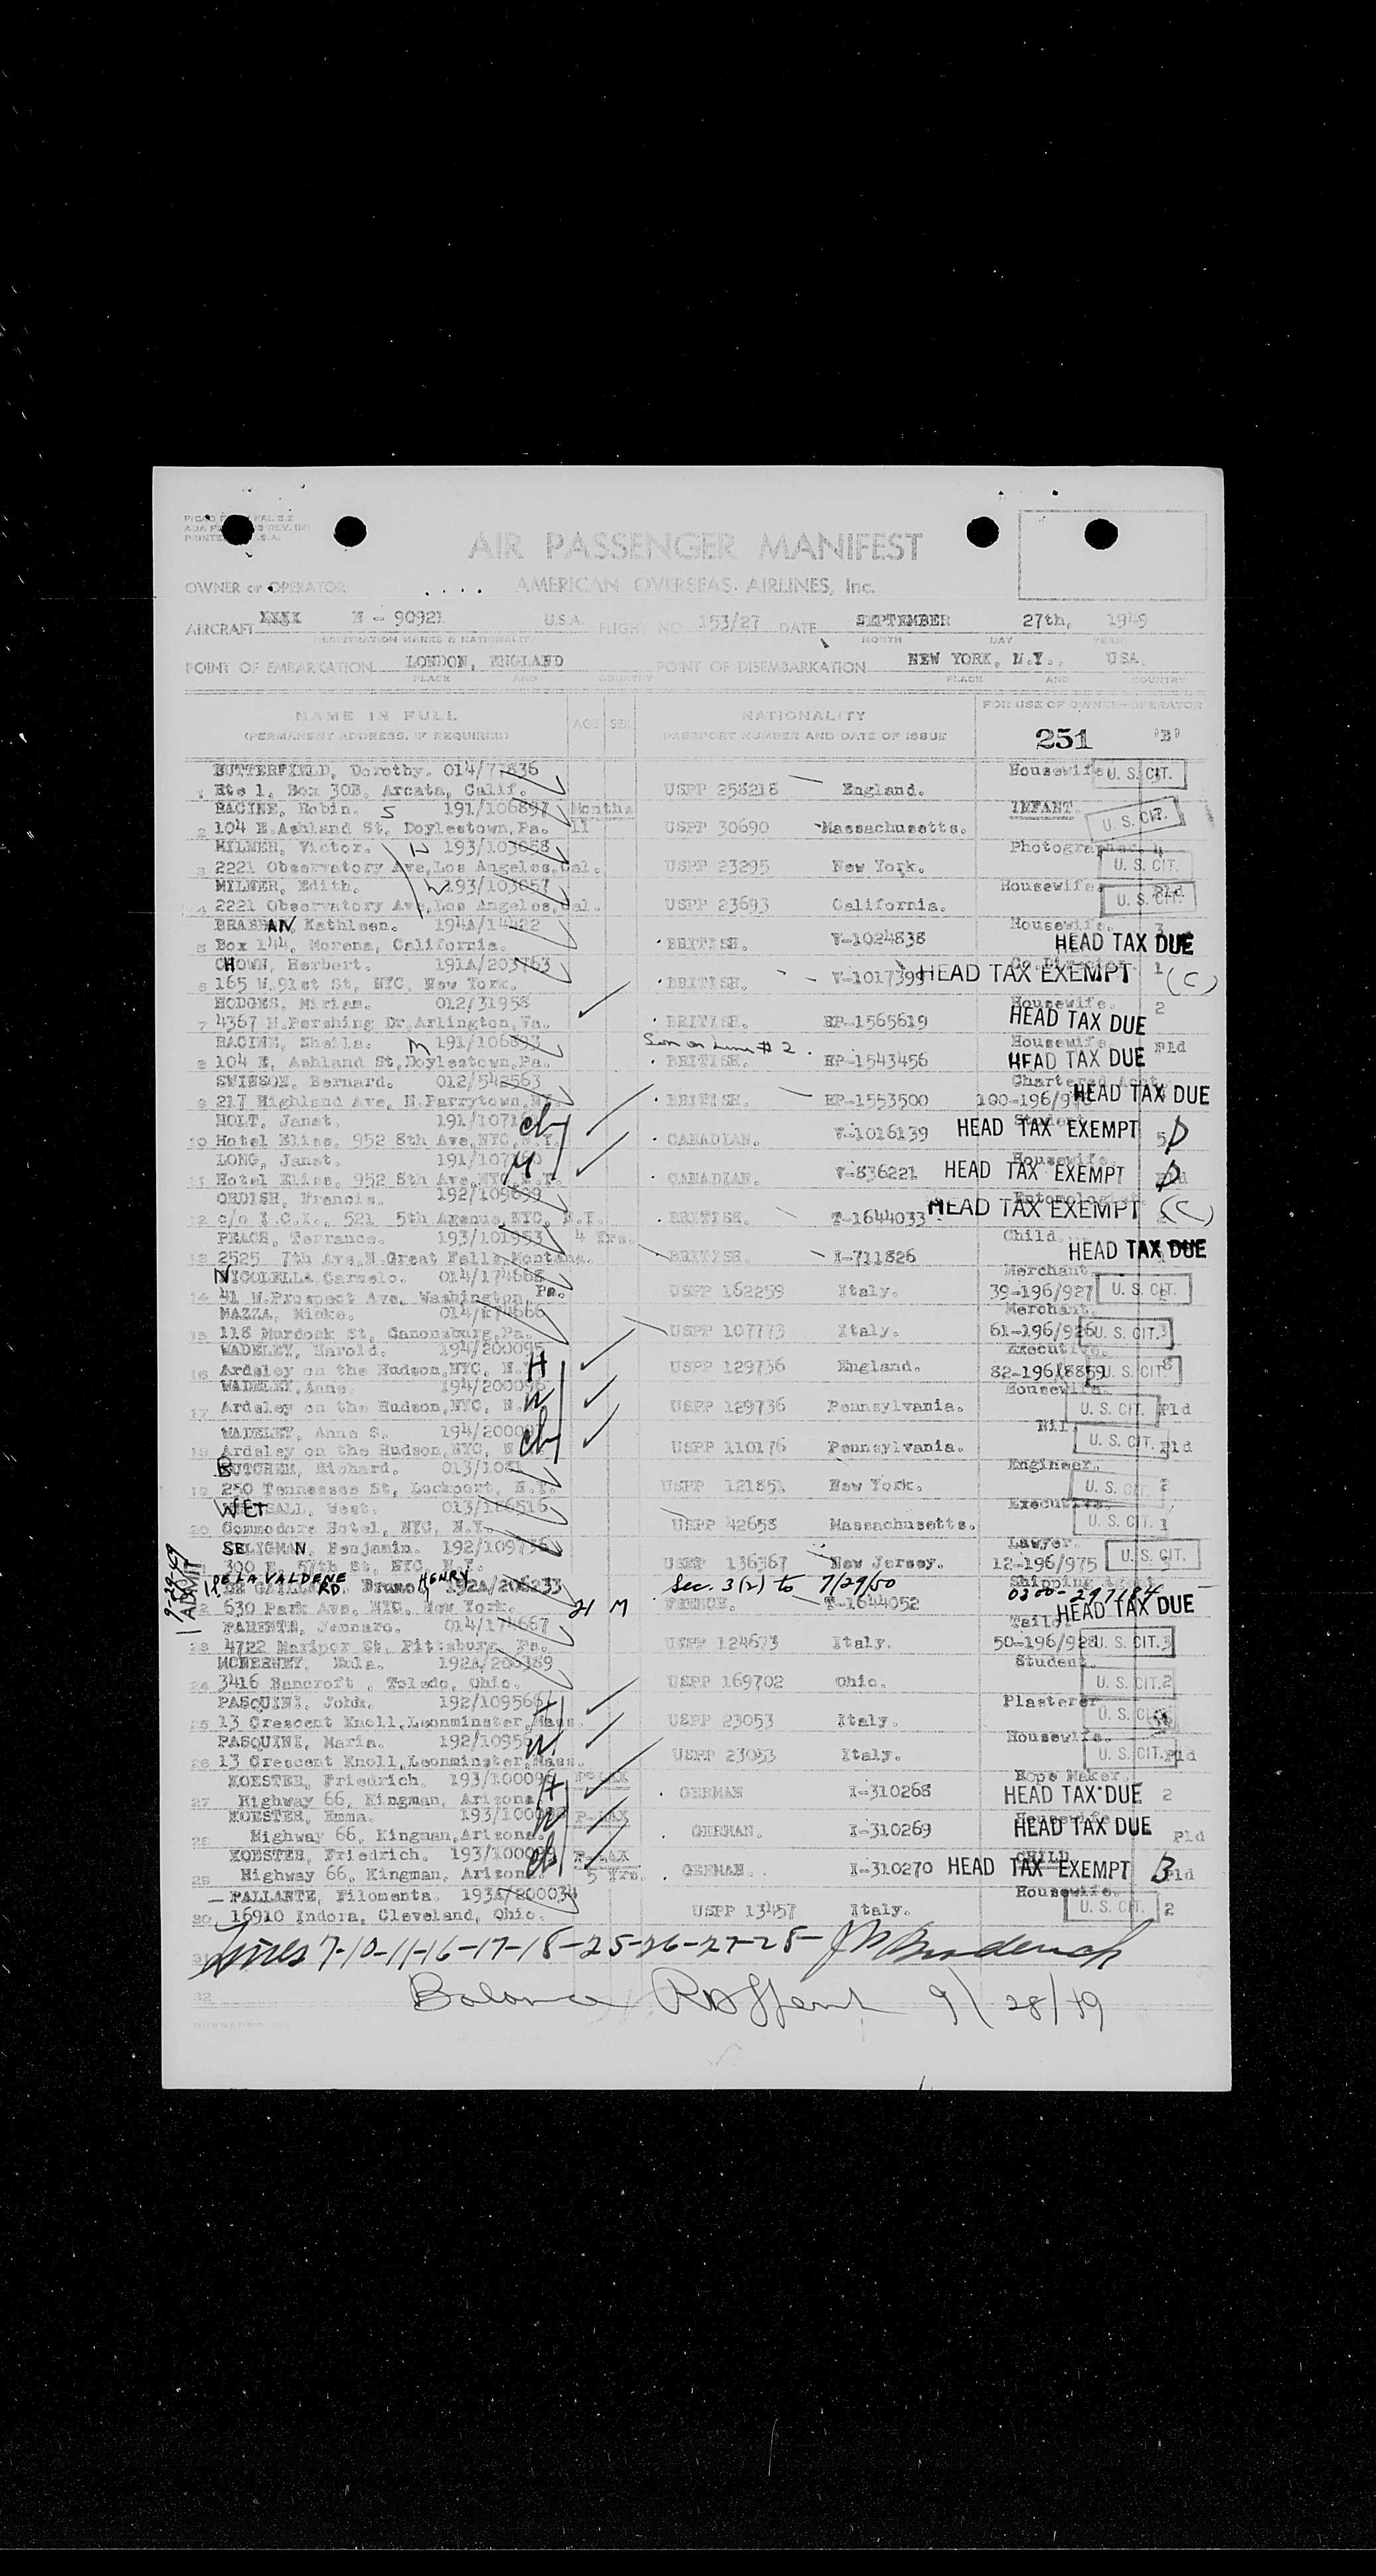 AIR PASSENGER MANIFEST
OWNER or OPERATOR .... AMERICAN OVERSEAS AIRLINES, Inc.
AIRCRAFT XXXX N - 90921 U.S.A. FLIGHT NO. 153/27 DATE SEPTEMBER 27th, 1949
REGISTRATION MARKS & NATIONALITY MONTH DAY YEAR
POINT OF EMBARKATION LONDON, ENGLAND POINT OF DISEMBARKATION NEW YORK, N.Y., USA.
PLACE AND COUNTRY PLACE AND COUNTRY
NAME IN FULL AGE SEX NATIONALITY FOR USE OF OWNER-OPERATOR
(PERMANENT ADDRESS, IF REQUIRED) PASSPORT NUMBER AND DATE OF ISSUE 251 "B"
BUTTERFIELD, Dorothy. 014/77836 Housewife U. S. CIT.
1 Rte 1, Box 30B, Arcata, Calif. USPP 258218 England.
RACINE, Robin. S 191/106897 Months INFANT.
2 104 E.Ashland St, Doylestown,Pa. 11 USPP 30690 Massachusetts. U. S. CIT.
MILNER, Victor. 193/103058 Photographer 4
3 2221 Observatory Ave,Los Angeles,Cal. USPP 23295 New York. U. S. CIT.
MILNER, Edith. 193/103057 Housewife. Pld
4 2221 Observatory Ave,Los Angeles,Cal. USPP 23693 California. U. S. CIT.
BRABHAN, Kathleen. 194A/14422 Housewife. 3
5 Box 144, Morena, California. BRITISH. V-1024838 HEAD TAX DUE
CHOWN, Herbert. 191A/203763 Co.Director. 1
6 165 W.91st St, NYC, New York. BRITISH. V-1017399 HEAD TAX EXEMPT (C)
HODGES, Miriam. 012/31958 Housewife. 2
7 4367 N.Pershing Dr,Arlington,Va. BRITISH. EP-1565619 HEAD TAX DUE
RACINE, Sheila. M 191/106893 Son on Line # 2 Housewife. Pld
8 104 E, Ashland St,Doylestown,Pa. BRITISH. EP-1543456 HEAD TAX DUE
SWINSON, Bernard. 012/542563 Chartered Acnt.
9 217 Highland Ave, N.Parrytown,NY. BRITISH. EP-1553500 100-196/9 HEAD TAX DUE
HOLT, Janet. 191/1071 ch Student
10 Hotel Eliss, 952 8th Ave,NYC,N.Y. CANADIAN. V-1016139 HEAD TAX EXEMPT 5 D
LONG, Janet. 191/107 M Housewife.
11 Hotel Eliss, 952 8th Ave,NYC,N.Y. CANADIAN. V-836221 HEAD TAX EXEMPT D
ORDISH, Francis. 192/109699 Entomologist
12 c/o I.C.I., 521 5th Avenue,NYC, N.Y. BRITISH. T-1644033 HEAD TAX EXEMPT (C)
PEACH, Terrance. 193/101953 4 Yrs. Child.
13 2525 7th Ave,N.Great Falls,Montana. BRITISH. I-711826 HEAD TAX DUE
NICOLELLA Carmelo. 014/174668 Merchant.
14 41 W.Prospect Ave, Washington, Pa. USPP 162259 Italy. 39-196/927 U. S. CIT.
MAZZA, Mieke. 014/174666 Merchant.
15 118 Murdock St, Canonsburg,Pa. USPP 107773 Italy. 61-196/926 U. S. CIT. 3
WADELEY, Harold. 194/200095 Executive.
16 Ardsley on the Hudson,NYC, N. H USPP 129736 England. 82-196/8859 U. S. CIT. 8
WADELEY, Anne. 194/200096 Housewife.
17 Ardsley on the Hudson,NYC, N. W USPP 129736 Pennsylvania. U. S. CIT. Pld
WADELEY, Anne S. 194/2000 Nil.
18 Ardsley on the Hudson,NYC, N ch USPP 110176 Pennsylvania. U. S. CIT. Pld
BUTCHEM, Richard. 013/1081 Engineer.
19 250 Tennessee St, Lockport, N.Y. USPP 121851 New York. U. S. CIT. 2
WET ALL, West. 013/186516 Executive.
20 Commodore Hotel, NYC, N.Y. USPP 42658 Massachusetts. U. S. CIT. 1
SELIGMAN, Benjamin. 192/109756 Lawyer.
300 E. 57th St, NYC, N.Y. USPP 136367 New Jersey. 12-196/975 U. S. CIT.
9-29-49 ADMIT
DE LA VALDENE HENRY Sec. 3(2) to 7/29/50 0300-297184
DE GAILLARD, Bruno 192A/206233 Shipping Agent
22 630 Park Ave, NYC, New York. 21 M FRENCH. T-1644052 HEAD TAX DUE
PARENTE, Jennaro. 014/174667 Tailor
23 4722 Mariper St, Pittsburg, Pa. USPP 124673 Italy. 50-196/928 U. S. CIT. 3
MCNERNEY, Eula. 192A/206389 Student
24 3416 Bancroft , Toledo, Ohio. USPP 169702 Ohio. U. S. CIT. 2
PASQUINI, John. 192/109566 H Plasterer
25 13 Crescent Knoll,Leonminster,Mass. USPP 23053 Italy. U. S. CIT.
PASQUINI, Maria. 192/1095 W Housewife.
26 13 Crescent Knoll,Leonminster,Mass. USPP 23053 Italy. U. S. CIT. Pld
KOESTER, Friedrich. 193/100098 H P-TAX Rope Maker.
27 Highway 66, Kingman, Arizona. GERMAN I-310268 HEAD TAX DUE 2
KOESTER, Emma. 193/1000 W P-TAX Housewife
28 Highway 66, Kingman,Arizona. GERMAN. I-310269 HEAD TAX DUE Pld
KOESTER, Friedrich. 193/1000 ch P-TAX CHILD
29 Highway 66, Kingman, Arizona. 5 Yrs. GERMAN. I-310270 HEAD TAX EXEMPT B Pld
PALLANTE, Filomenta. 193A/200034 Housewife.
30 16910 Indora, Cleveland, Ohio. USPP 13457 Italy. U. S. CIT. 2
31 Lines 7-10-11-16-17-18-25-26-27-28-
32 Balance 9/28/49